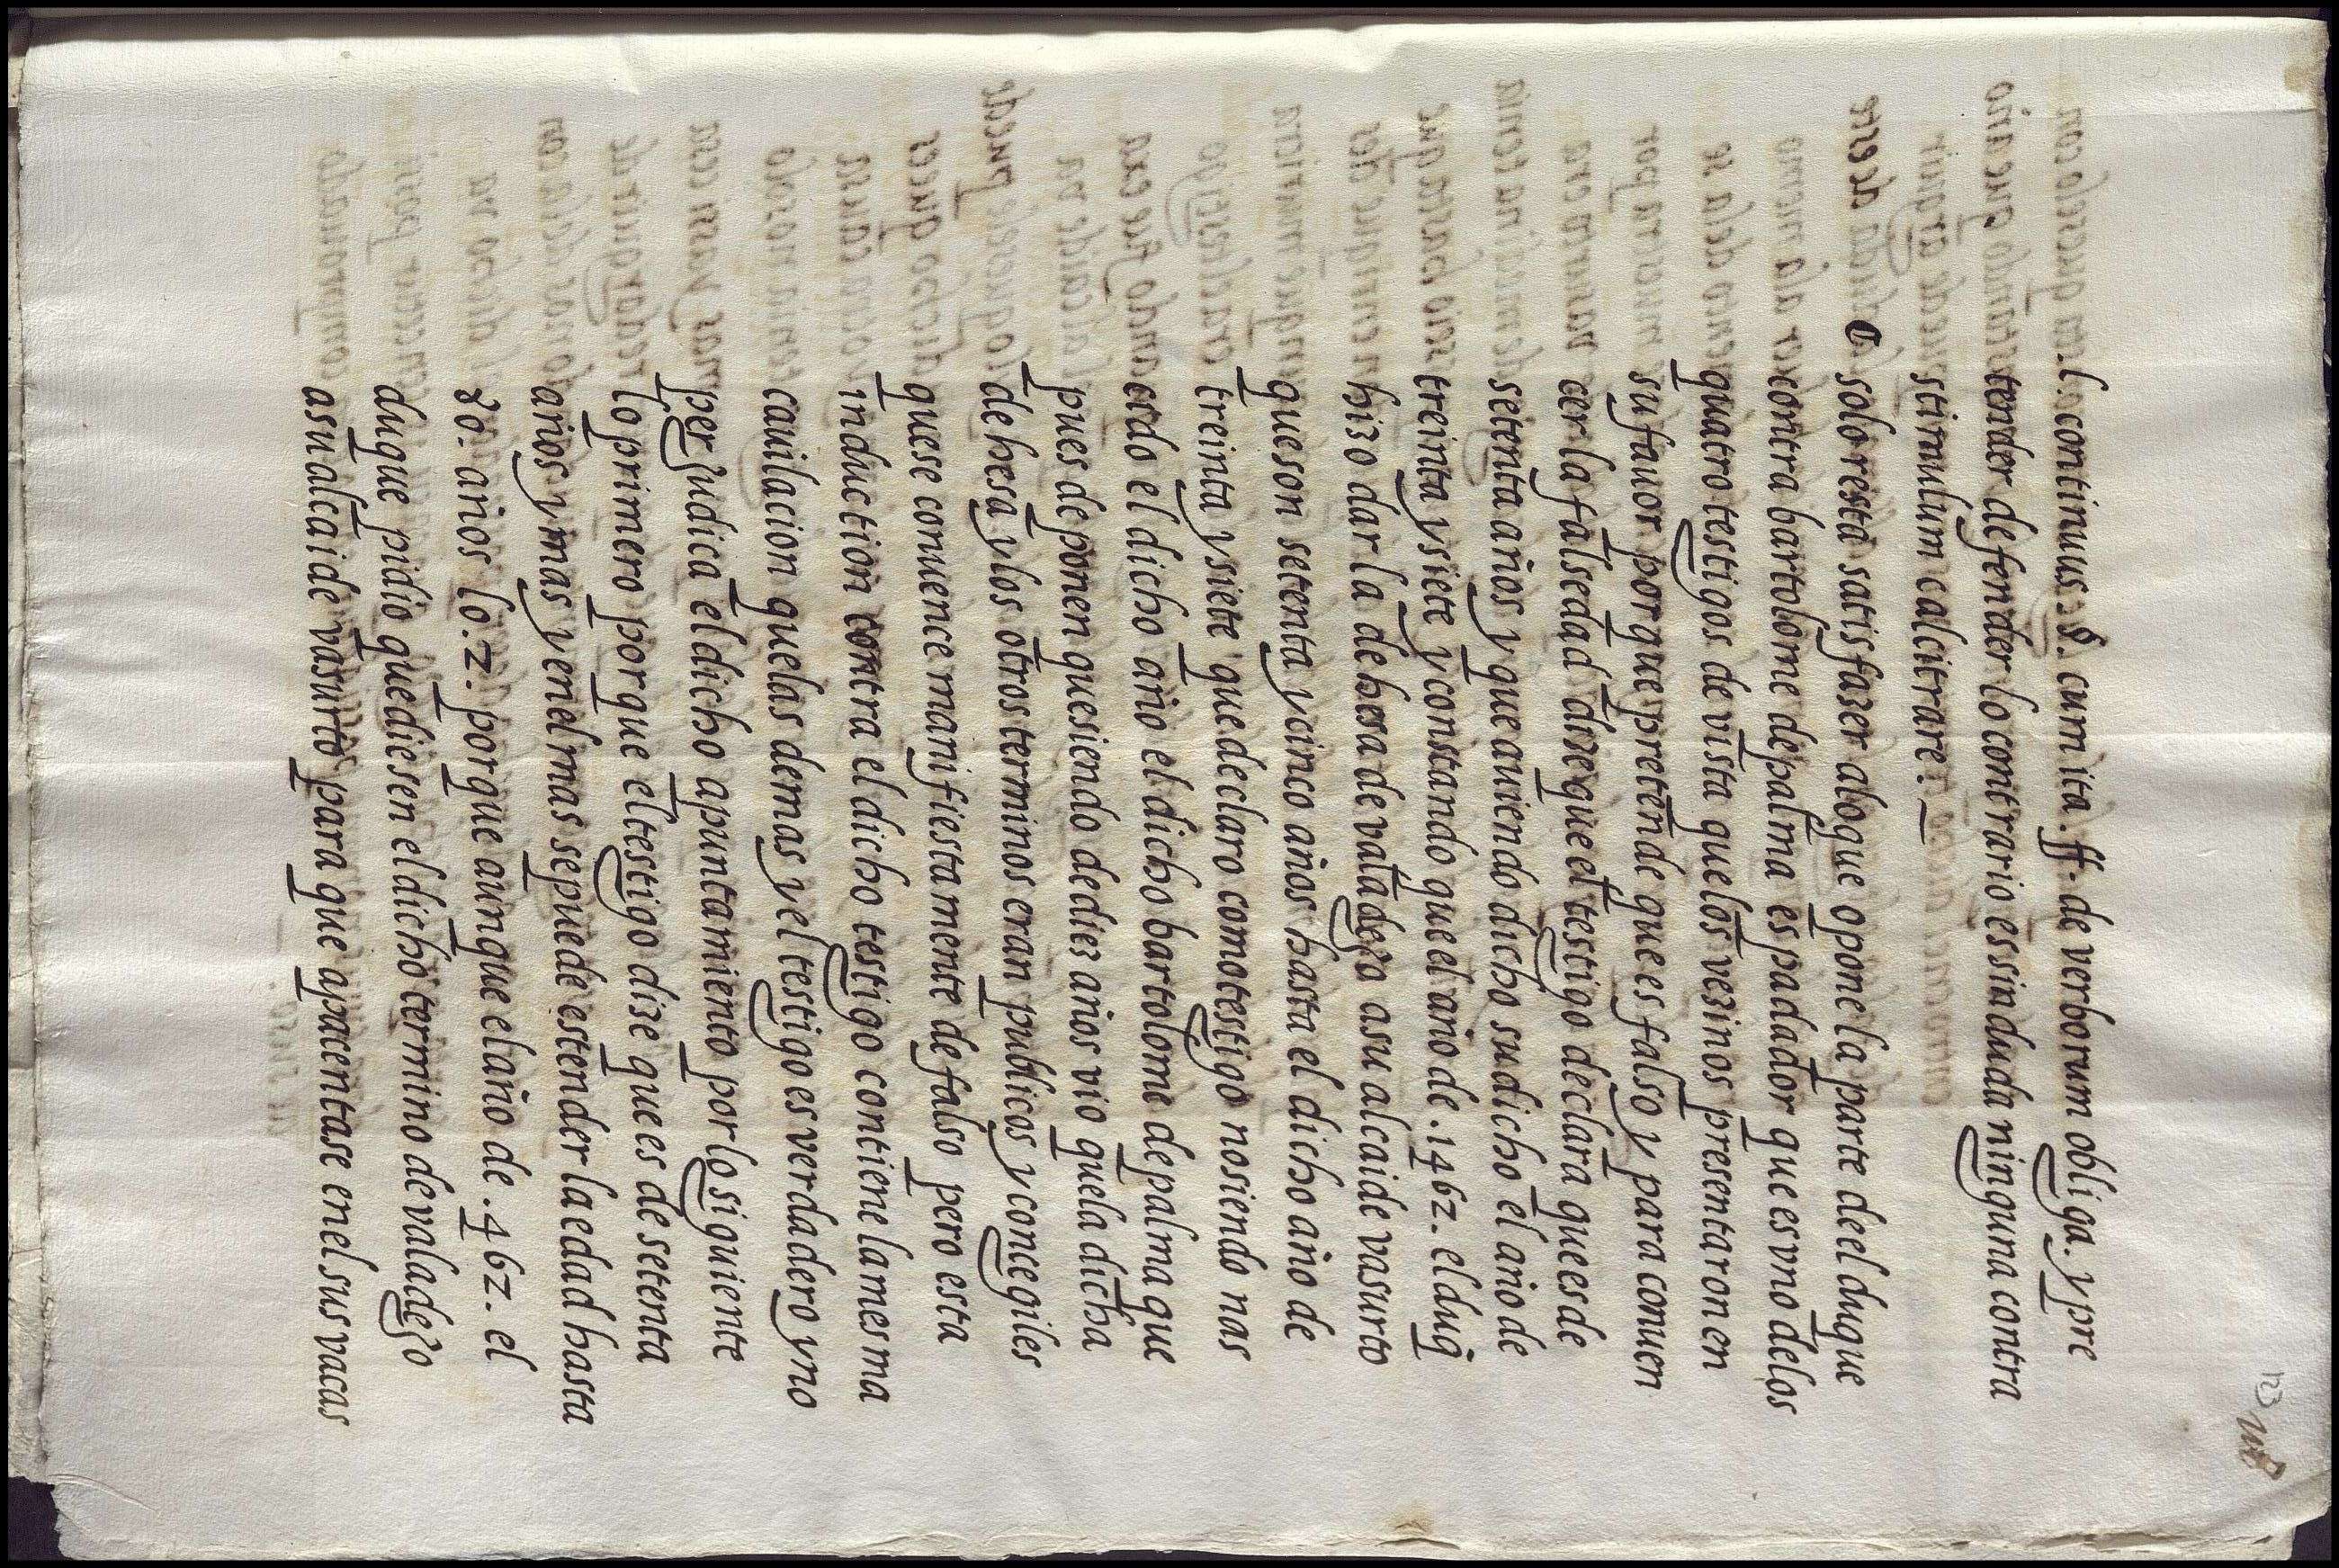 l. continuus §. cum ita. ff. de verborum obliga. y pre
tender defender lo contrario es sin duda ninguna contra
stimulum calcitrare.
solo resta satisfazer a lo que opone la parte deel duque
contra bartolome de palma espadador que es vno de los
quatro testigos de vista que los vezinos presentaron en
su fauor porque pretende que es falso y para conuen
cer la falsedad dize que el testigo declara que es de
setenta años y que auiendo dicho su dicho el año de
treinta y siete y constando que el año de .1462. el duq
hizo dar la dehesa de valadezo a su alcaide vasurto
que son setenta y cinco años hasta el dicho año de
treinta y siete que declaro como testigo no siendo nas
cido el dicho año el dicho bartolome de palma que
pues deponen que siendo de diez años vio que la dicha
dehesa y los otros terminos eran publicas y concegiles
que se conuence manifiestamente de falso pero esta
induction contra el dicho testigo contiene la mesma
cauilacion que las demas y el testigo es verdadero y no
perjudica el dicho apuntamiento por lo siguiente
lo primero porque el testigo dize que es de setenta
años y mas y en el mas se puede estender la edad hasta
80. años lo .2. porque aunque el año de .462. el
duque pidio que diesen el dicho termino de valadezo
a su alcaide vasurto para que apacentase en el sus vacas